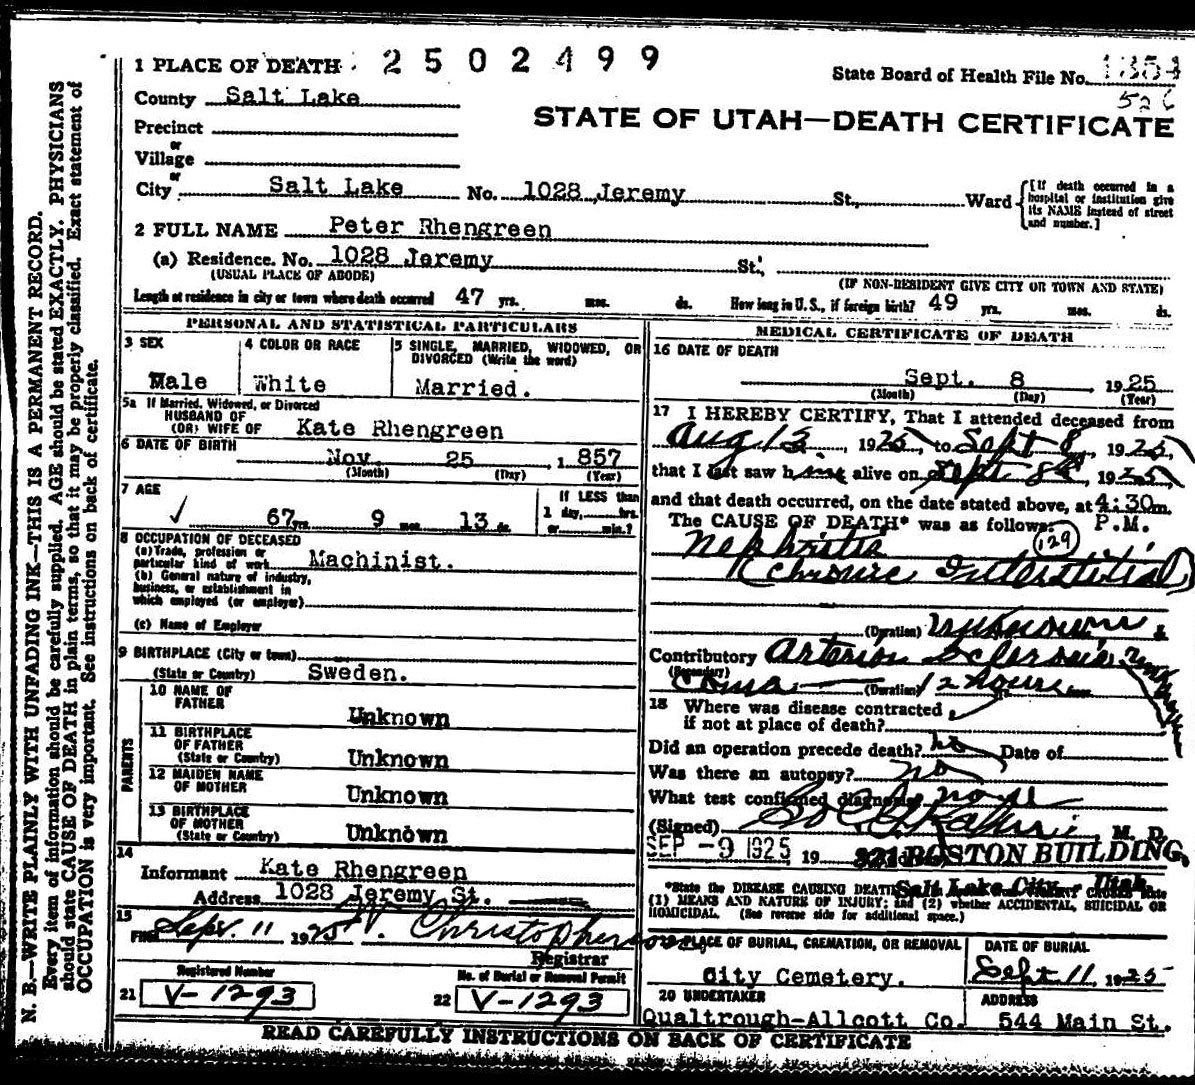 1 PLACE OF DEATH 2502499
State Board of Health File No.
County Salt Lake
526
STATE OF UTAH—DEATH CERTIFICATE
Precinct
or
Village
or
City Salt Lake No. 1028 Jeremy St., Ward
[If death occurred in a
hospital or institution give
its NAME instead of street
and number.]
2 FULL NAME Peter Rhengreen
(a) Residence. No. 1028 Jeremy St.
(USUAL PLACE OF ABODE) (IF NON-RESIDENT GIVE CITY OR TOWN AND STATE)
Length of residence in city or town where death occurred 47 yrs. mos. ds. How long in U. S., if foreign birth? 49 yrs. mos. ds.
PERSONAL AND STATISTICAL PARTICULARS
3 SEX
Male
4 COLOR OR RACE
White
5 SINGLE, MARRIED, WIDOWED, OR
DIVORCED (Write the word)
Married.
5a If Married, Widowed, or Divorced
HUSBAND OF
(OR) WIFE OF Kate Rhengreen
6 DATE OF BIRTH
Nov 25 , 1 857
(Month) (Day) (Year)
7 AGE
67 yrs. 9 mos. 13 ds.
If LESS than
1 day, hrs.
or min.?
8 OCCUPATION OF DECEASED
(a) Trade, profession or
particular kind of work Machinist.
(b) General nature of industry,
business, or establishment in
which employed (or employer)
(c) Name of Employer
9 BIRTHPLACE (City or town)
(State or Country) Sweden.
PARENTS
10 NAME OF
FATHER
Unknown
11 BIRTHPLACE
OF FATHER
(State or Country) Unknown
12 MAIDEN NAME
OF MOTHER
Unknown
13 BIRTHPLACE
OF MOTHER
(State or Country) Unknown
14
Informant Kate Rhengreen
Address 1028 Jeremy St.
15
Filed Sept. 11 1925 Christopherson
Registrar
Registered Number
21 V-1293
No. of Burial or Removal Permit
22 V-1293
MEDICAL CERTIFICATE OF DEATH
16 DATE OF DEATH
Sept. 8 , 1925
(Month) (Day) (Year)
17 I HEREBY CERTIFY, That I attended deceased from
Aug 13, 1925, to Sept 8, 1925,
that I last saw him alive on Sept 8th, 1925,
and that death occurred, on the date stated above, at 4:30m.
The CAUSE OF DEATH* was as follows: P.M.
Nephritis 129
Chronic Interstitial
(Duration) unknown
Contributory Arterio Sclerosis
(Secondary)
Coma — (Duration) 12 hours
18 Where was disease contracted
if not at place of death?
Did an operation precede death? no Date of
Was there an autopsy? no
What test confirmed diagnosis
(Signed) , M. D.
SEP - 9 1925 19 321 BOSTON BUILDING,
Salt Lake City, Utah
*State the DISEASE CAUSING DEATH
(1) MEANS AND NATURE OF INJURY; and (2) whether ACCIDENTAL, SUICIDAL OR
HOMICIDAL. (See reverse side for additional space.)
PLACE OF BURIAL, CREMATION, OR REMOVAL
City Cemetery.
DATE OF BURIAL
Sept 11, 1925
20 UNDERTAKER
Qualtrough-Allcott Co.
ADDRESS
544 Main St.
READ CAREFULLY INSTRUCTIONS ON BACK OF CERTIFICATE
N. B.—WRITE PLAINLY WITH UNFADING INK—THIS IS A PERMANENT RECORD.
Every item of information should be carefully supplied. AGE should be stated EXACTLY. PHYSICIANS
should state CAUSE OF DEATH in plain terms, so that it may be properly classified. Exact statement of
OCCUPATION is very important. See instructions on back of certificate.